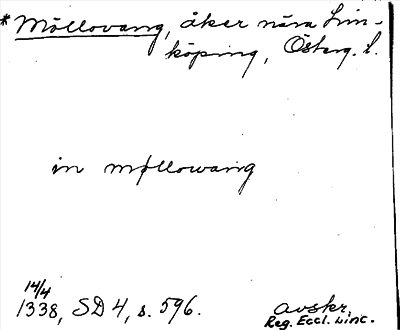 *Möllovang, åker nära Lin-
köping, Österg. l.
in møllowang
14/4
1338, SD 4, s. 596.
avskr.
Reg. Eccl. Linc.